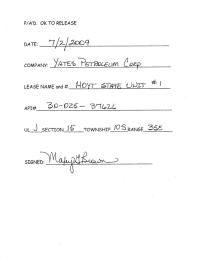 P/A'D. OK TO RELEASE
DATE: 7/2/2009
COMPANY: YATES PETROLEUM CORP
LEASE NAME and #. HOYT STATE UNIT #1
API# 30-025-37626
UL J SECTION 15 TOWNSHIP 10S RANGE 35E
SIGNED